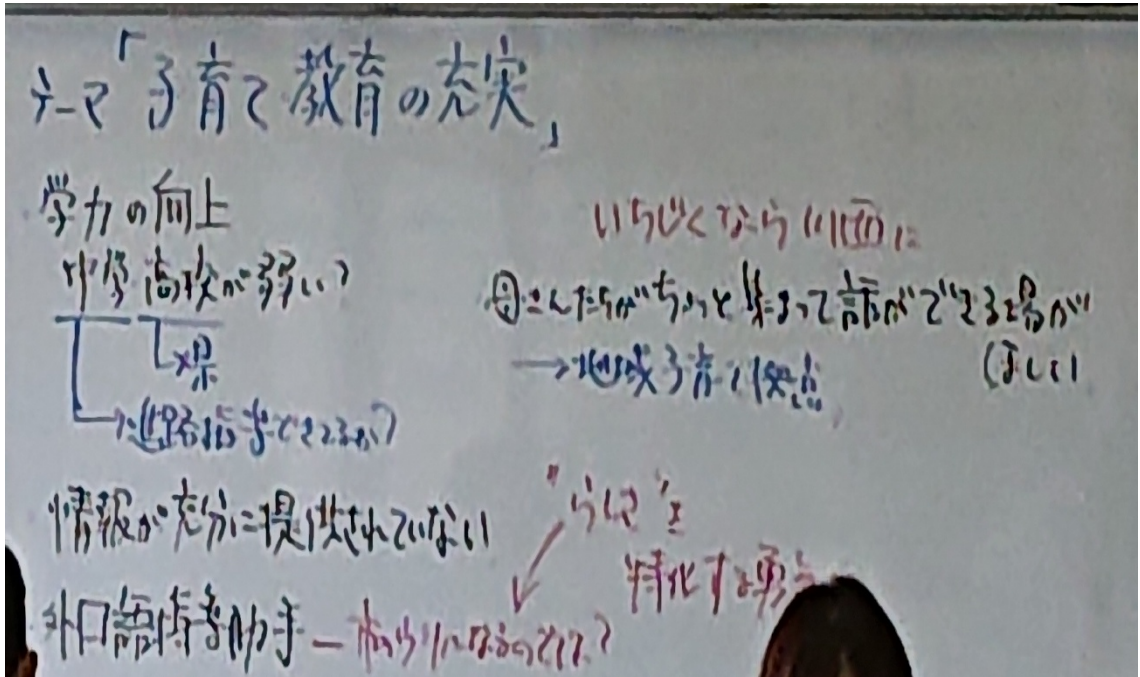 テーマ「子育て教育の充実」
学力の向上
中学 高校が弱い?
県
進路指導できるか?
情報が充分に提供されていない
外口語指導助手
いちじくなら川西に
母さんたちがちょっと集まって話ができる場が
ほしい
→地域子育て拠点
"らしさ"を
特化する勇